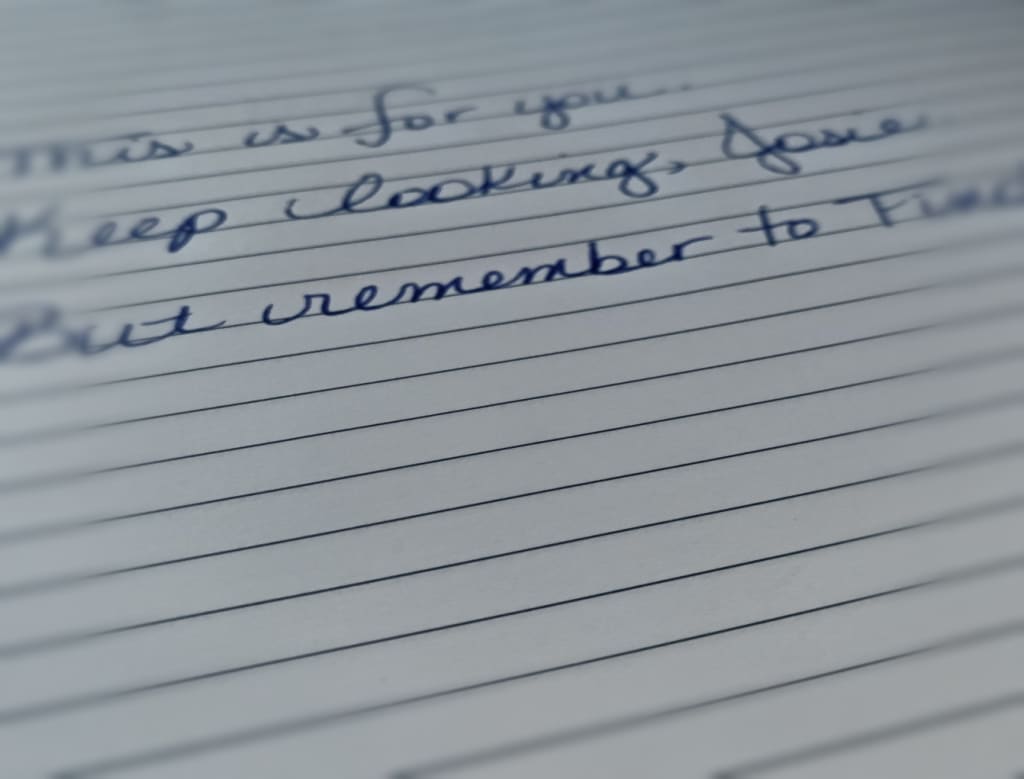 This is for you..
Keep looking, Josie
But remember to Find